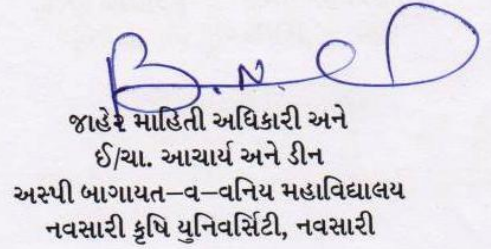 B.N.D
જાહેર માહિતી અધિકારી અને
ઈ/ચા. આચાર્ય અને ડીન
અસ્પી બાગાયત–વ–વનિય મહાવિદ્યાલય
નવસારી કૃષિ યુનિવર્સિટી, નવસારી